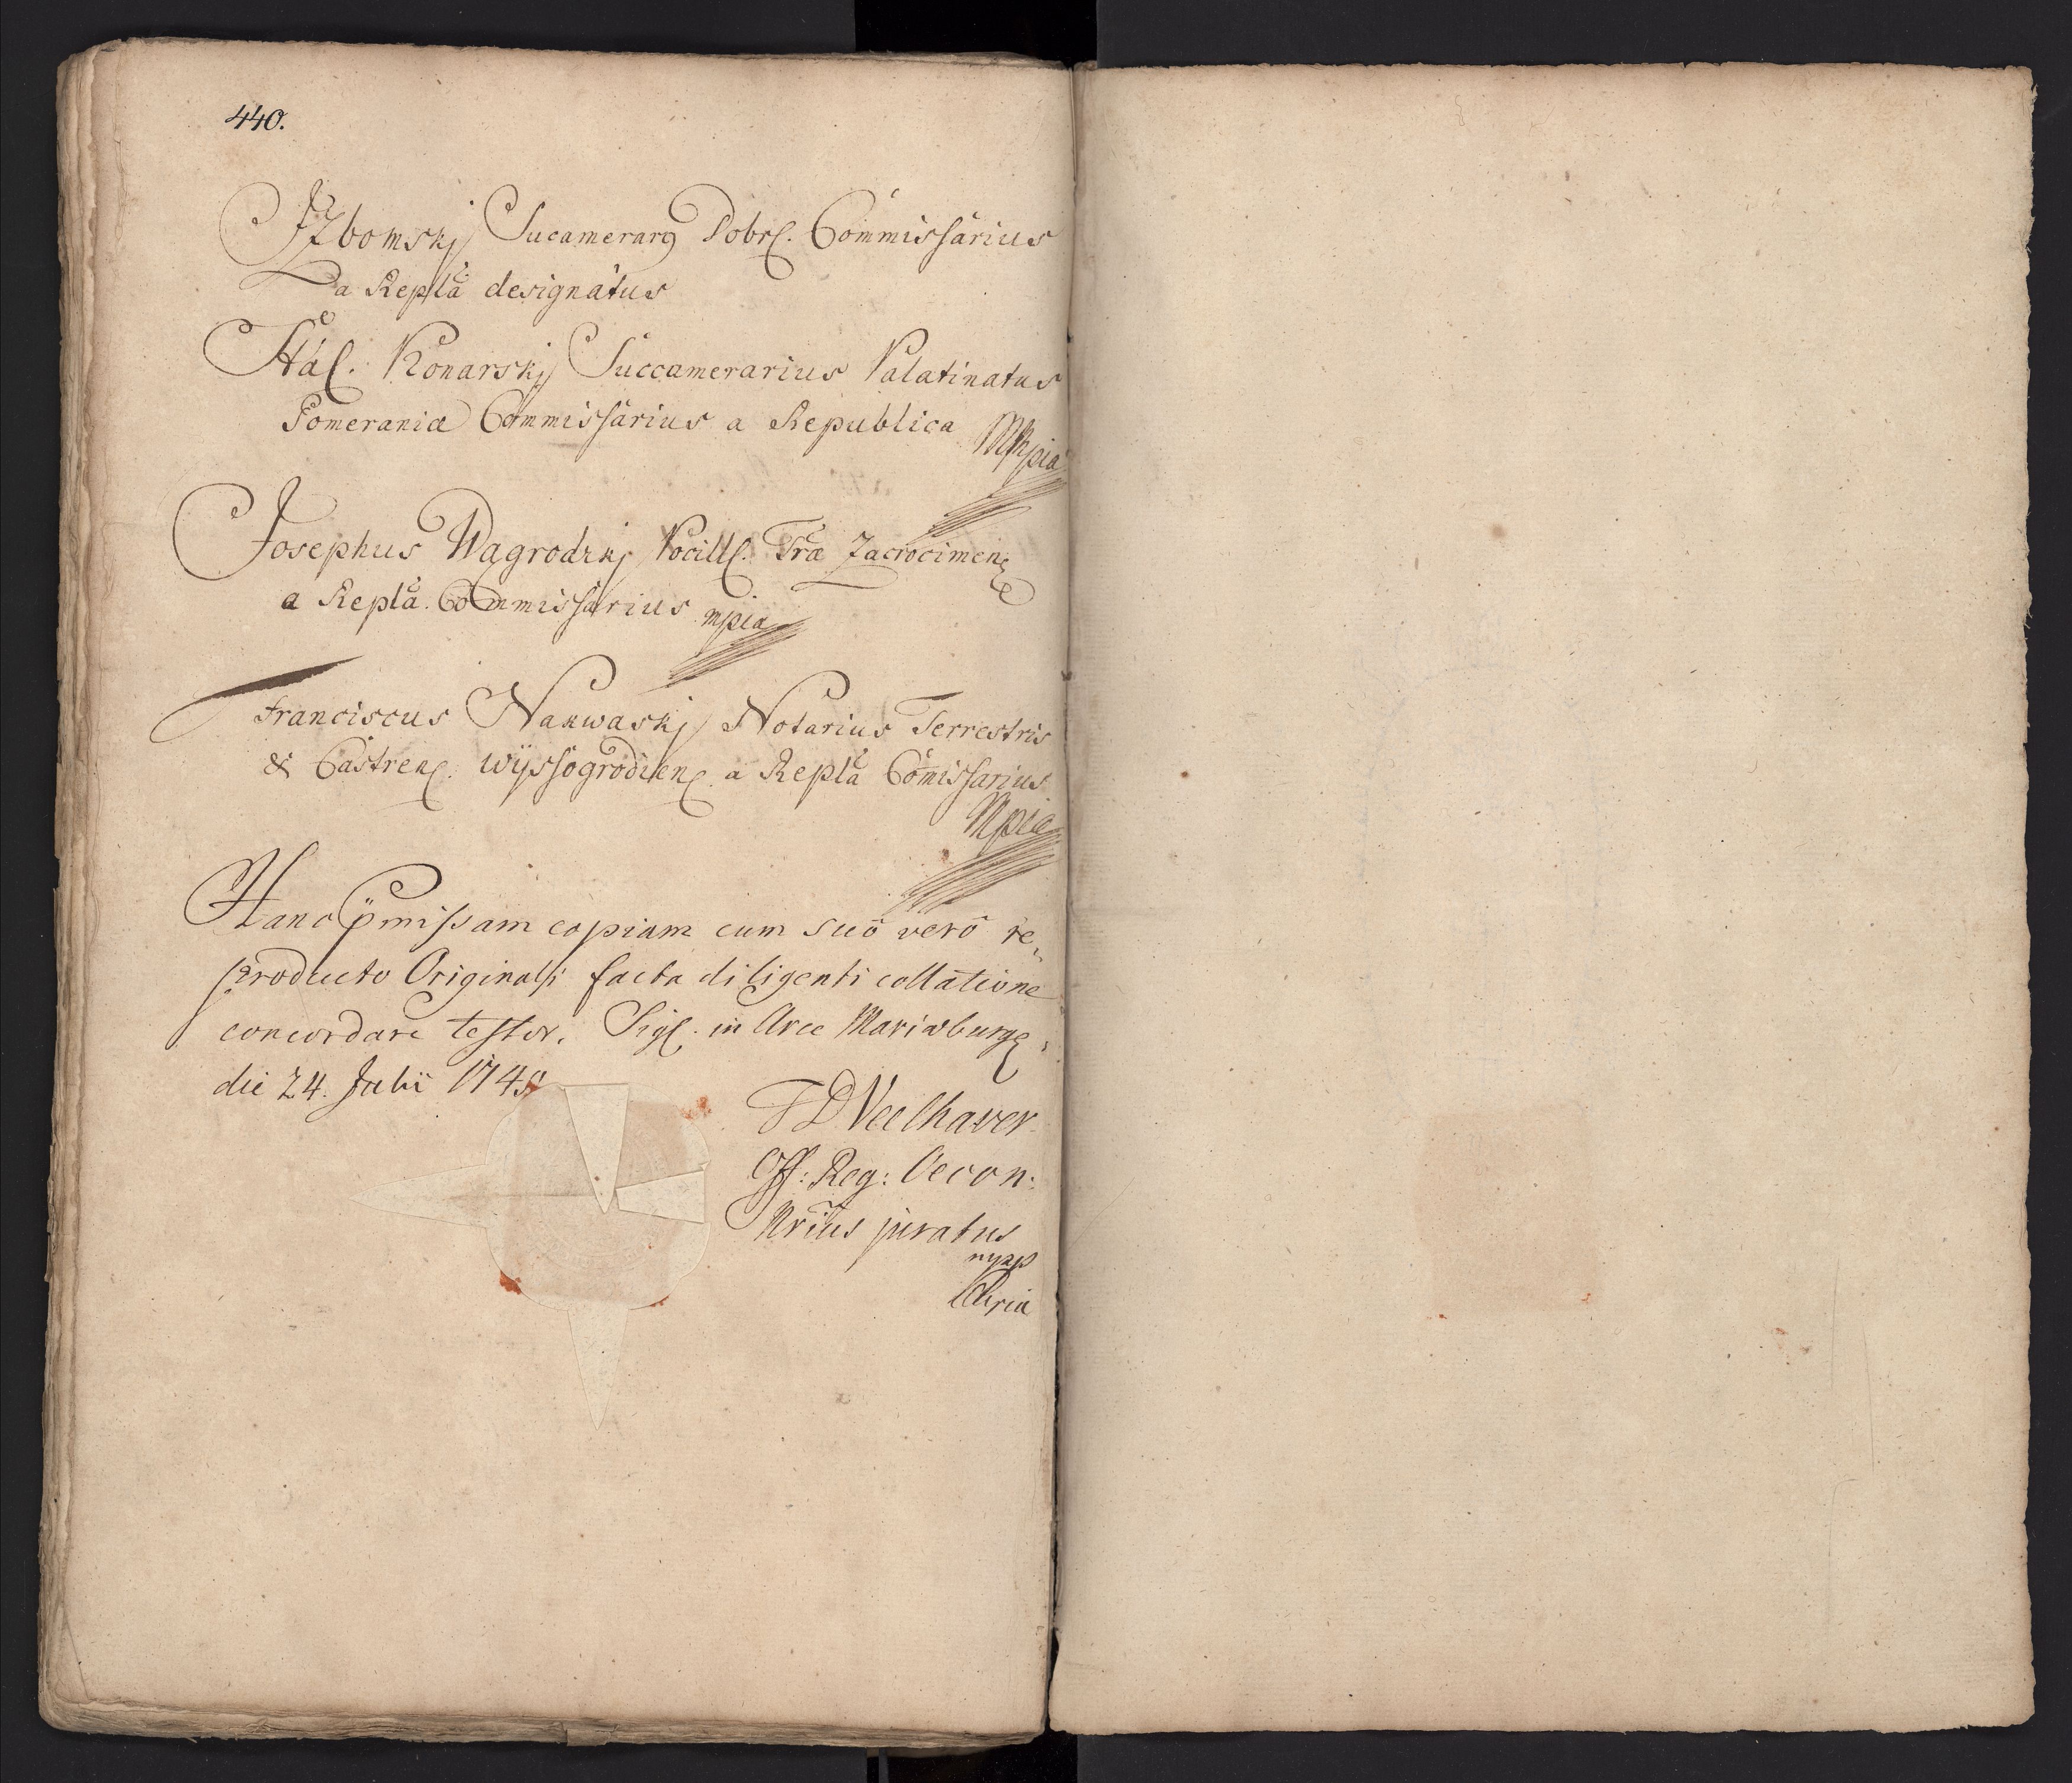 440.
JZbomskj Sucamerarꝰ Dobrſ. Commissarius
a Replã designatus
Stãſ. Konarskj Succamerarius Palatinatus
Pomeraniæ Commissarius a Republica
Mppia
Josephus Wagrodzkj Pocillſ. Træ Zacrocimenſ
a Replã. Commissarius mpia
Franciscus Nakwaskj Notarius Terrestris
& Castrenſ. Wÿssogrodienſ. a Replã Comissarius
Mpia
Hanc p̈missam copiam cum suô verô re„
producto Originali facta diligenti collatione
concordare testor. Sigſ. in Arce Mariæburgſ
die 24. Julii 1748
F D Veelhaver
Off: Reg: Oecon:
Nr̃ius juratus
mpp